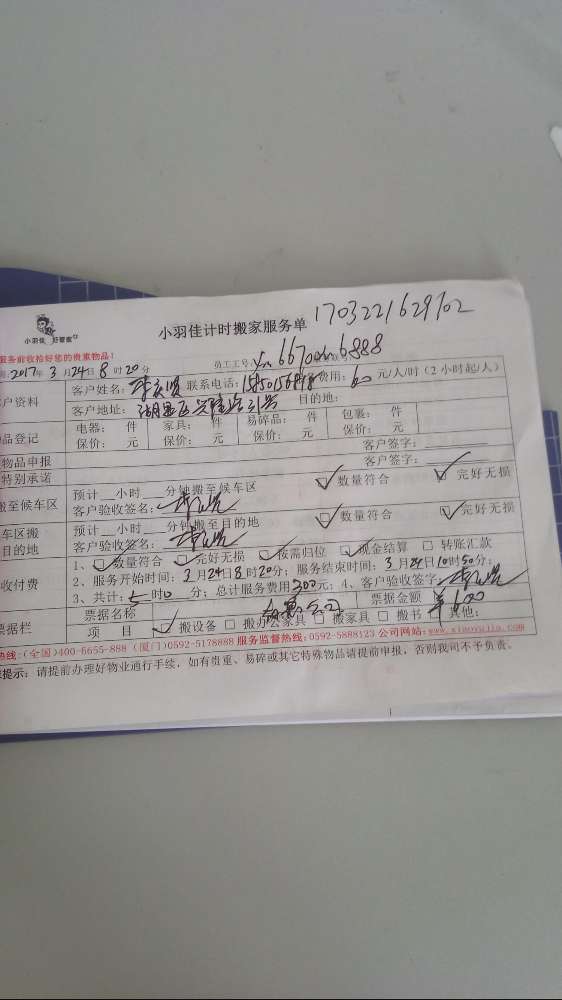 小羽佳 好管家
小羽佳计时搬家服务单 170322162902
服务前收拾好您的贵重物品!
2017年 3月24日 8时20分 员工工号:
客户资料 客户姓名: 联系电话: 费用: 60 元/人/时(2小时起/人)
客户地址: 目的地:
品登记 电器: 件 家具: 件 易碎品: 件 包裹: 件
保价: 元 保价: 元 保价: 元 保价: 元
物品申报 客户签字:
特别承诺 客户签字:
搬至候车区 预计 小时 分钟搬至候车区 数量符合 完好无损
客户验收签名:
车区搬 预计 小时 分钟搬至目的地 数量符合 完好无损
目的地 客户验收签名:
收付费 1、数量符合 完好无损 按需归位 现金结算 转账汇款
2、服务开始时间:3月24日8时20分;服务结束时间:3月24日10时50分;
3、共计:5时0分;总计服务费用300元;4、客户验收签字:
票据栏 票据名称 票据金额
项 目 搬设备 搬办公家具 搬家具 搬书 其他:
热线:(全国)400-6655-888 (厦门)0592-5178888 服务监督热线:0592-5888123 公司网站:www.xiaoyujia.com
提示:请提前办理好物业通行手续,如有贵重、易碎或其它特殊物品请提前申报,否则我司不予负责。